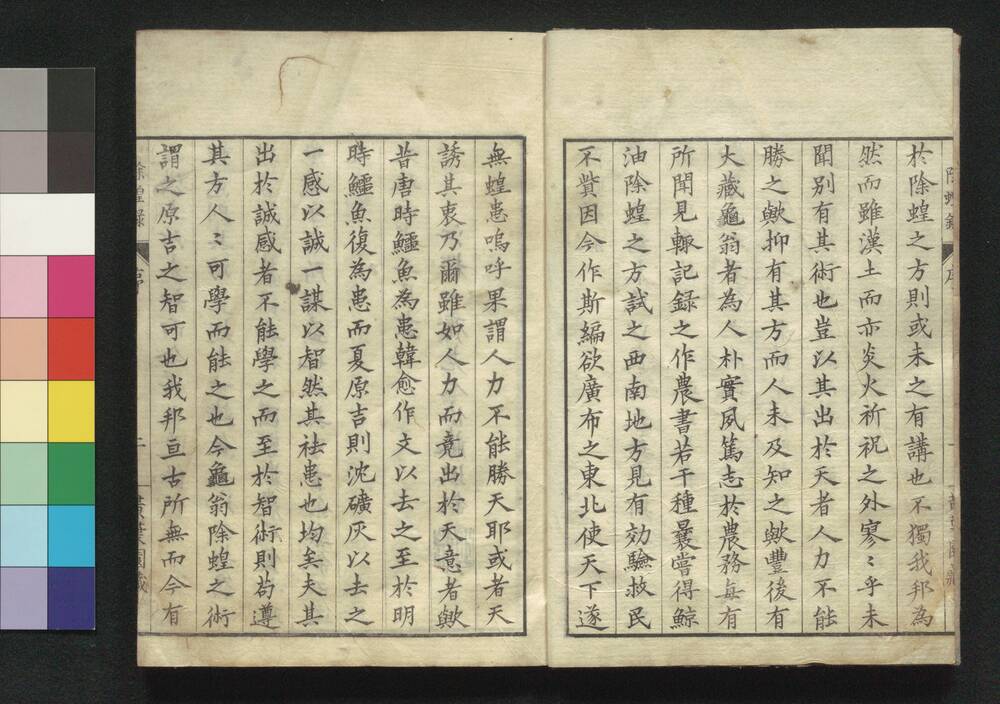 於除蝗之方則或未之有講也不獨我邦為
然而雖漢土而亦炎火祈祝之外寥〻乎未
聞別有其術也豈以其出於天者人力不能
勝之歟抑有其方而人未及知之歟豐後有
大藏龜翁者為人朴實夙篤志於農務每有
所聞見輙記録之作農書若干種曩嘗得鯨
油除蝗之方試之西南地方見有効驗救民
不貲因今作斯編欲廣布之東北使天下遂
無蝗患嗚呼果謂人力不能勝天耶或者天
誘其衷乃爾雖如人力而竟出於天意者歟
昔唐時鱷魚為患韓愈作文以去之至於明
時鱷魚復為患而夏原吉則沈礦灰以去之
一感以誠一謀以智然其祛患也均矣夫其
出於誠感者不能學之而至於智術則苟遵
其方人〻可學而能之也今龜翁除蝗之術
謂之原吉之智可也我邦亘古所無而今有
除蝗録
序
二